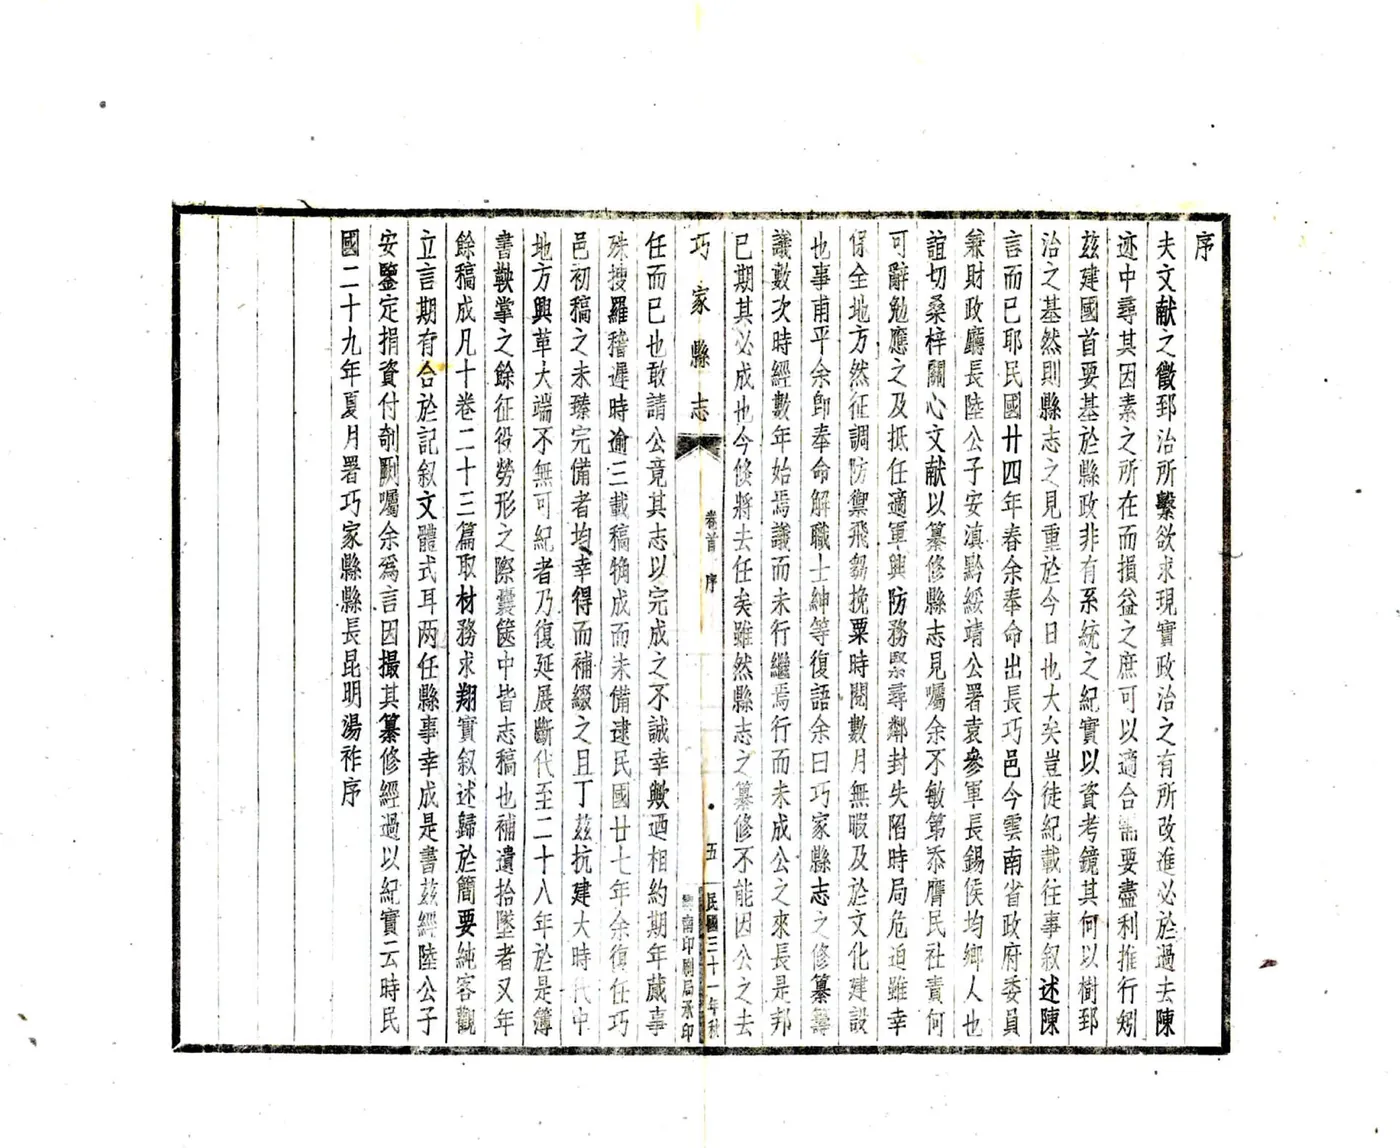 序
夫文献之徵郅治所繫欲求現實政治之有所改進必於過去陳
迹中尋其因素之所在而損益之庶可以適合需要盡利推行矧
茲建國首要基於縣政非有系統之紀實以資考鏡其何以樹郅
治之基然則縣志之見重於今日也大矣豈徒紀載往事叙述陳
言而已耶民國廿四年春余奉命出長巧邑今雲南省政府委員
兼財政廳長陸公子安滇黔綏靖公署袁參軍長錫侯均鄉人也
誼切桑梓關心文献以纂修縣志見囑余不敏第忝膺民社責何
可辭勉應之及抵任適軍興防務緊尋鄰封失陷時局危迫雖幸
保全地方然征調防禦飛芻挽粟時閱數月無暇及於文化建設
也事甫平余卽奉命解職士紳等復語余曰巧家縣志之修纂籌
議數次時經數年始焉議而未行繼焉行而未成公之來長是邦
已期其必成也今倏將去任矣雖然縣志之纂修不能因公之去
巧家縣志
卷首 序
五
民國三十一年秋
雲南印刷局承印
任而已也敢請公竟其志以完成之不誠幸歟迺相約期年蕆事
殊搜羅稽遲時逾三載稿犄成而未備逮民國廿七年余復任巧
邑初稿之未臻完備者均幸得而補綴之且丁茲抗建大時代中
地方興革大端不無可紀者乃復延展斷代至二十八年於是簿
書鞅掌之餘征役勞形之際囊篋中皆志稿也補遺拾墜者又年
餘稿成凡十卷二十三篇取材務求翔實叙述歸於簡要純客觀
立言期有合於記叙文體式耳两任縣事幸成是書茲經陸公子
安鑒定捐資付剞劂囑余爲言因撮其纂修經過以紀實云時民
國二十九年夏月署巧家縣縣長昆明湯祚序